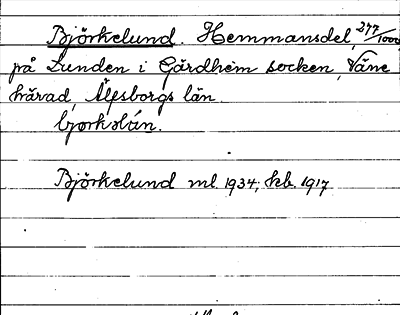 Björkelund. Hemmansdel, 277/1000
på Lunden i Gärdhem socken, Väne
härad, Älfsborgs län.
Björkelund ml. 1934; kb. 1917